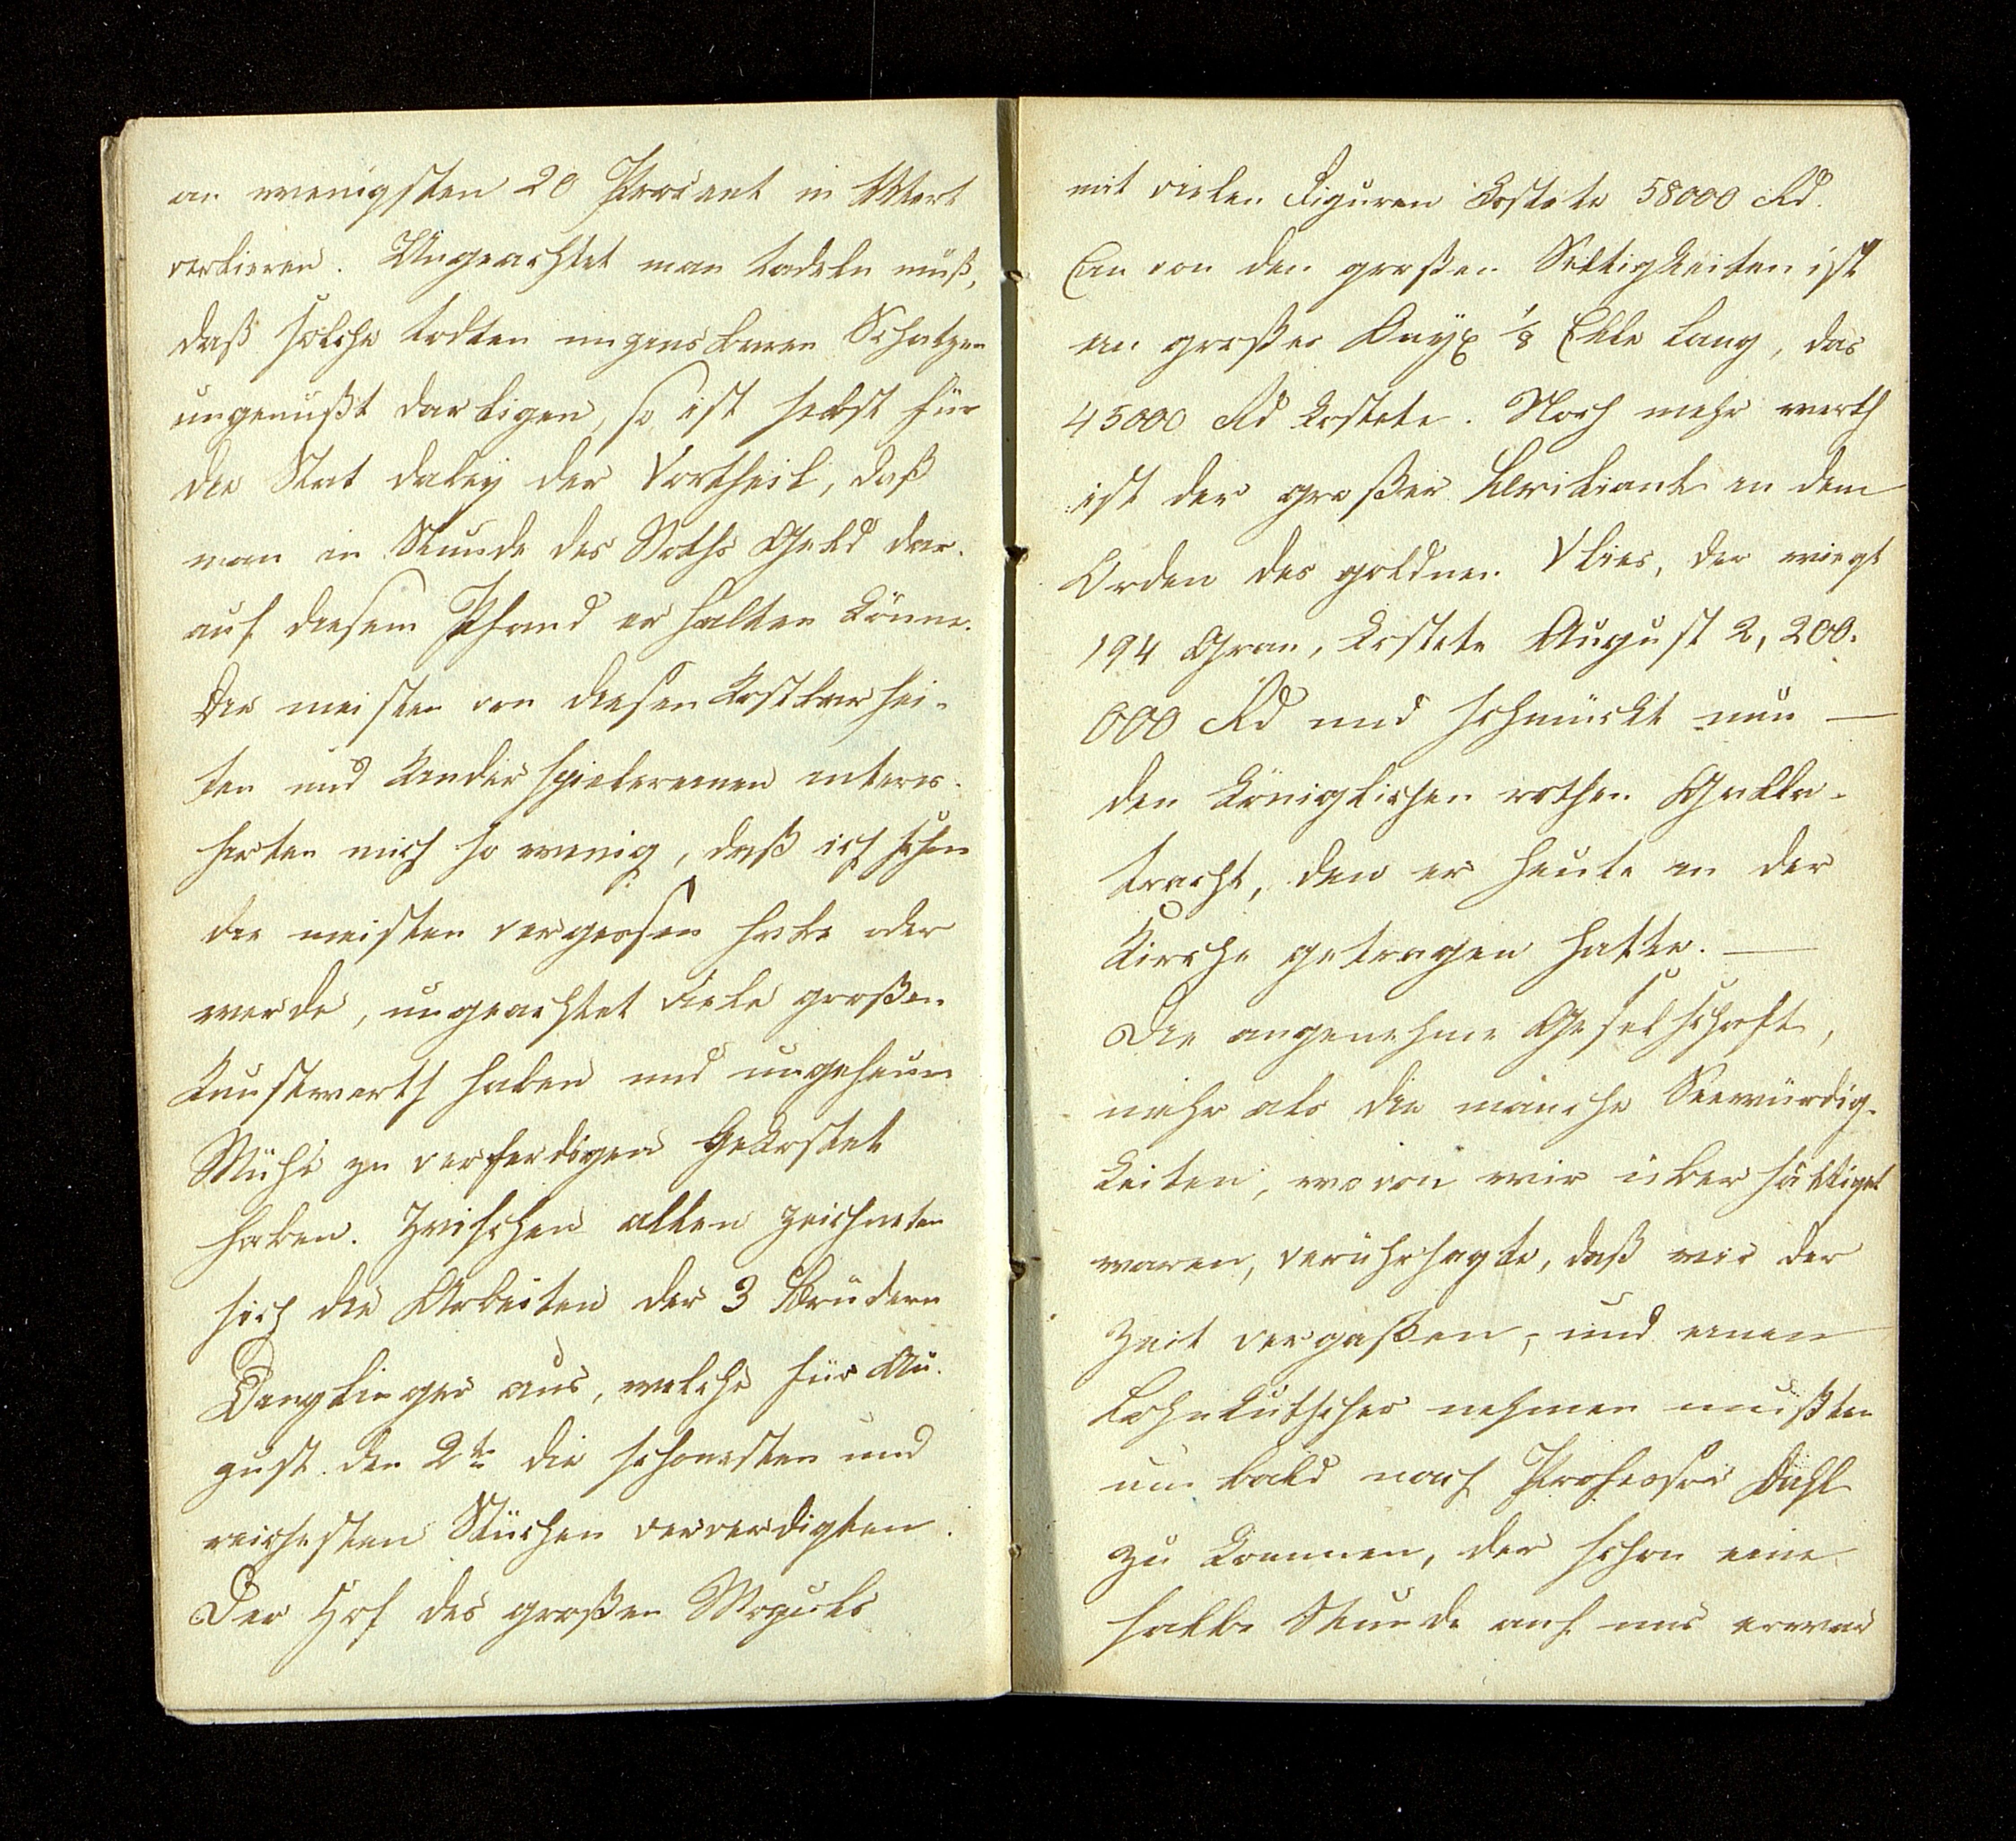 an wenigsten 20 Procent in Wert
verlieren. Ungeachtet man tadeln muß,
daß solche todten ungenusbaren Schatzen
ungenußt darligen, so ist selbst für
die Stat dabey der Vortheil, daß
man in Stunde des Noths Geld dar-
auf diesem Pfand erhalten könne.
Die meisten von diesen Kostbarhei-
ten und Kinderspielereinen interes-
sirten mich so wenig, daß ich schon
die meisten vergessen habe oder
werde, ungeachtet viele großen
Kunstwerth haben und ungeheure
Mühe zu verferdigen gekostet
haben. Zwischen allen zeichneten
sich die Arbeiten der 3 Brüdern
Denglinger aus, welche für Au-
gust den 2te die schonesten und
reichesten Stüchen ververdigten.
Der Hof des großen Moguls
mit vielen Figuren kostete 58000 Rd.
Ein von den großen Seltigkeiten ist
ein großer Onyx 1/8 Elle lang, das
45000 Rd kostete. Noch mehr werth
ist der großer Briliant in dem
Orden des goldnen Vlies, der wiegt
194 Gran, kostete August 2, 200.
000 Rd und schmückt nun —
den königlichen rothen Galla-
tracht, den er heute in der
Kirche getragen hatte. —
Die angenehme Geselschaft,
mehr als die manche Seewürdig-
keiten, wovon wir übersättiget
waren, verührsagte, daß wir der
Zeit vergaßen, und einen
Lohnkutscher nehmen mußten
um bald nach Professor Dahl
zu kommen, der schon eine
halbe Stunde auf uns erwar